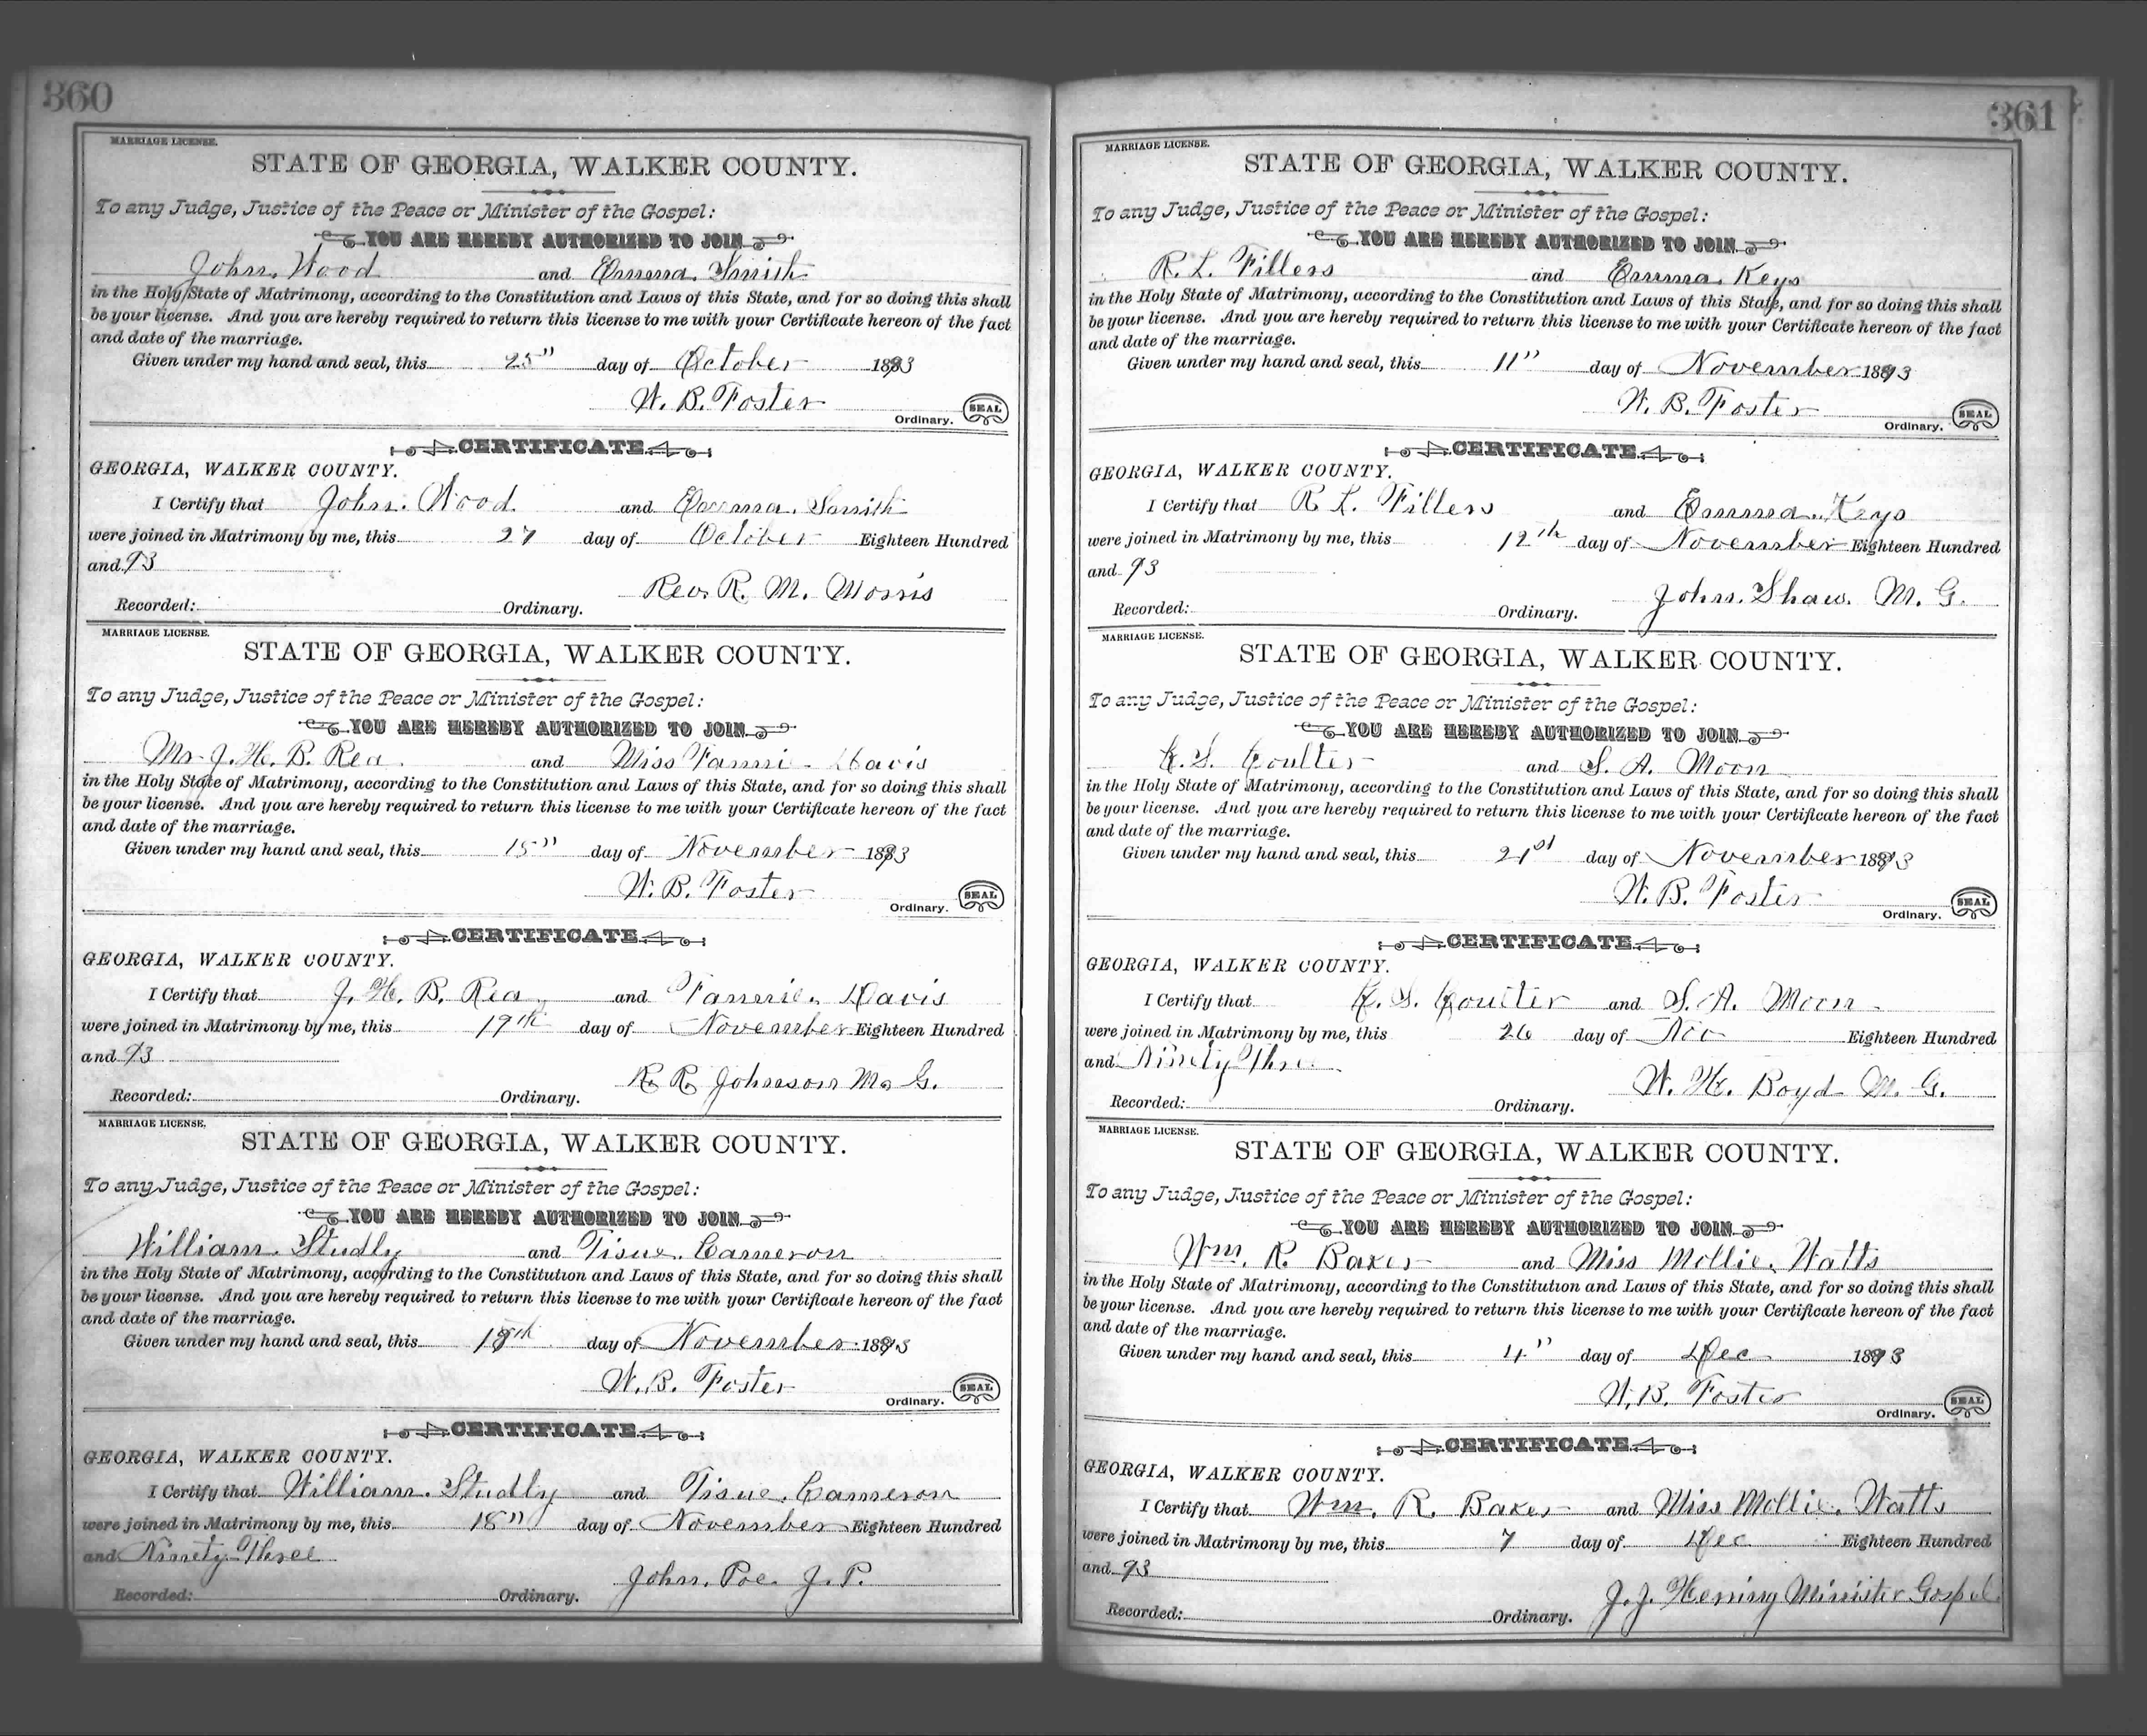 360
MARRIAGE LICENSE.
STATE OF GEORGIA, WALKER COUNTY.
To any Judge, Justice of the Peace or Minister of the Gospel:
YOU ARE HEREBY AUTHORIZED TO JOIN
John. Wood and Emma. Smith
in the Holy State of Matrimony, according to the Constitution and Laws of this State, and for so doing this shall
be your license. And you are hereby required to return this license to me with your Certificate hereon of the fact
and date of the marriage.
Given under my hand and seal, this 25" day of October 1893
W. B. Foster
Ordinary. SEAL
CERTIFICATE
GEORGIA, WALKER COUNTY.
I Certify that John. Wood and Emma. Smith
were joined in Matrimony by me, this 27 day of October Eighteen Hundred
and 93
Rev. R. M. Morris
Recorded: Ordinary.
MARRIAGE LICENSE.
STATE OF GEORGIA, WALKER COUNTY.
To any Judge, Justice of the Peace or Minister of the Gospel:
YOU ARE HEREBY AUTHORIZED TO JOIN
Mr. J. H. B. Rea and Miss Fannie Davis
in the Holy State of Matrimony, according to the Constitution and Laws of this State, and for so doing this shall
be your license. And you are hereby required to return this license to me with your Certificate hereon of the fact
and date of the marriage.
Given under my hand and seal, this 15" day of November 1893
W. B. Foster
Ordinary. SEAL
CERTIFICATE
GEORGIA, WALKER COUNTY.
I Certify that J. H. B. Rea and Fannie. Davis
were joined in Matrimony by me, this 19th day of November Eighteen Hundred
and 93
R. R. Johnson M. G.
Recorded: Ordinary.
MARRIAGE LICENSE.
STATE OF GEORGIA, WALKER COUNTY.
To any Judge, Justice of the Peace or Minister of the Gospel:
YOU ARE HEREBY AUTHORIZED TO JOIN
William. Studly and Tisue. Cameron
in the Holy State of Matrimony, according to the Constitution and Laws of this State, and for so doing this shall
be your license. And you are hereby required to return this license to me with your Certificate hereon of the fact
and date of the marriage.
Given under my hand and seal, this 18th day of November 1893
W. B. Foster
Ordinary. SEAL
CERTIFICATE
GEORGIA, WALKER COUNTY.
I Certify that William. Studly and Tisue. Cameron
were joined in Matrimony by me, this 18" day of November Eighteen Hundred
and Ninety Three
John. Poe. J. P.
Recorded: Ordinary.
361
MARRIAGE LICENSE.
STATE OF GEORGIA, WALKER COUNTY.
To any Judge, Justice of the Peace or Minister of the Gospel:
YOU ARE HEREBY AUTHORIZED TO JOIN
R. L. Fillers and Emma. Keys
in the Holy State of Matrimony, according to the Constitution and Laws of this State, and for so doing this shall
be your license. And you are hereby required to return this license to me with your Certificate hereon of the fact
and date of the marriage.
Given under my hand and seal, this 11" day of November 1893
W. B. Foster
Ordinary. SEAL
CERTIFICATE
GEORGIA, WALKER COUNTY.
I Certify that R. L. Fillers and Emma. Keys
were joined in Matrimony by me, this 12th day of November Eighteen Hundred
and 93
John. Shaw. M. G.
Recorded: Ordinary.
MARRIAGE LICENSE.
STATE OF GEORGIA, WALKER COUNTY.
To any Judge, Justice of the Peace or Minister of the Gospel:
YOU ARE HEREBY AUTHORIZED TO JOIN
S. Coulter and S. A. Moon
in the Holy State of Matrimony, according to the Constitution and Laws of this State, and for so doing this shall
be your license. And you are hereby required to return this license to me with your Certificate hereon of the fact
and date of the marriage.
Given under my hand and seal, this 21st day of November 1893
W. B. Foster
Ordinary. SEAL
CERTIFICATE
GEORGIA, WALKER COUNTY.
I Certify that S. Coulter and S. A. Moon
were joined in Matrimony by me, this 26 day of Nov Eighteen Hundred
and Ninety Three.
W. H. Boyd M. G.
Recorded: Ordinary.
MARRIAGE LICENSE.
STATE OF GEORGIA, WALKER COUNTY.
To any Judge, Justice of the Peace or Minister of the Gospel:
YOU ARE HEREBY AUTHORIZED TO JOIN
Wm. R. Baker and Miss Mollie. Watts
in the Holy State of Matrimony, according to the Constitution and Laws of this State, and for so doing this shall
be your license. And you are hereby required to return this license to me with your Certificate hereon of the fact
and date of the marriage.
Given under my hand and seal, this 4" day of Dec 1893
W. B. Foster
Ordinary. SEAL
CERTIFICATE
GEORGIA, WALKER COUNTY.
I Certify that Wm. R. Baker and Miss Mollie. Watts
were joined in Matrimony by me, this 7 day of Dec Eighteen Hundred
and 93
J. J. Minister Gospel
Recorded: Ordinary.